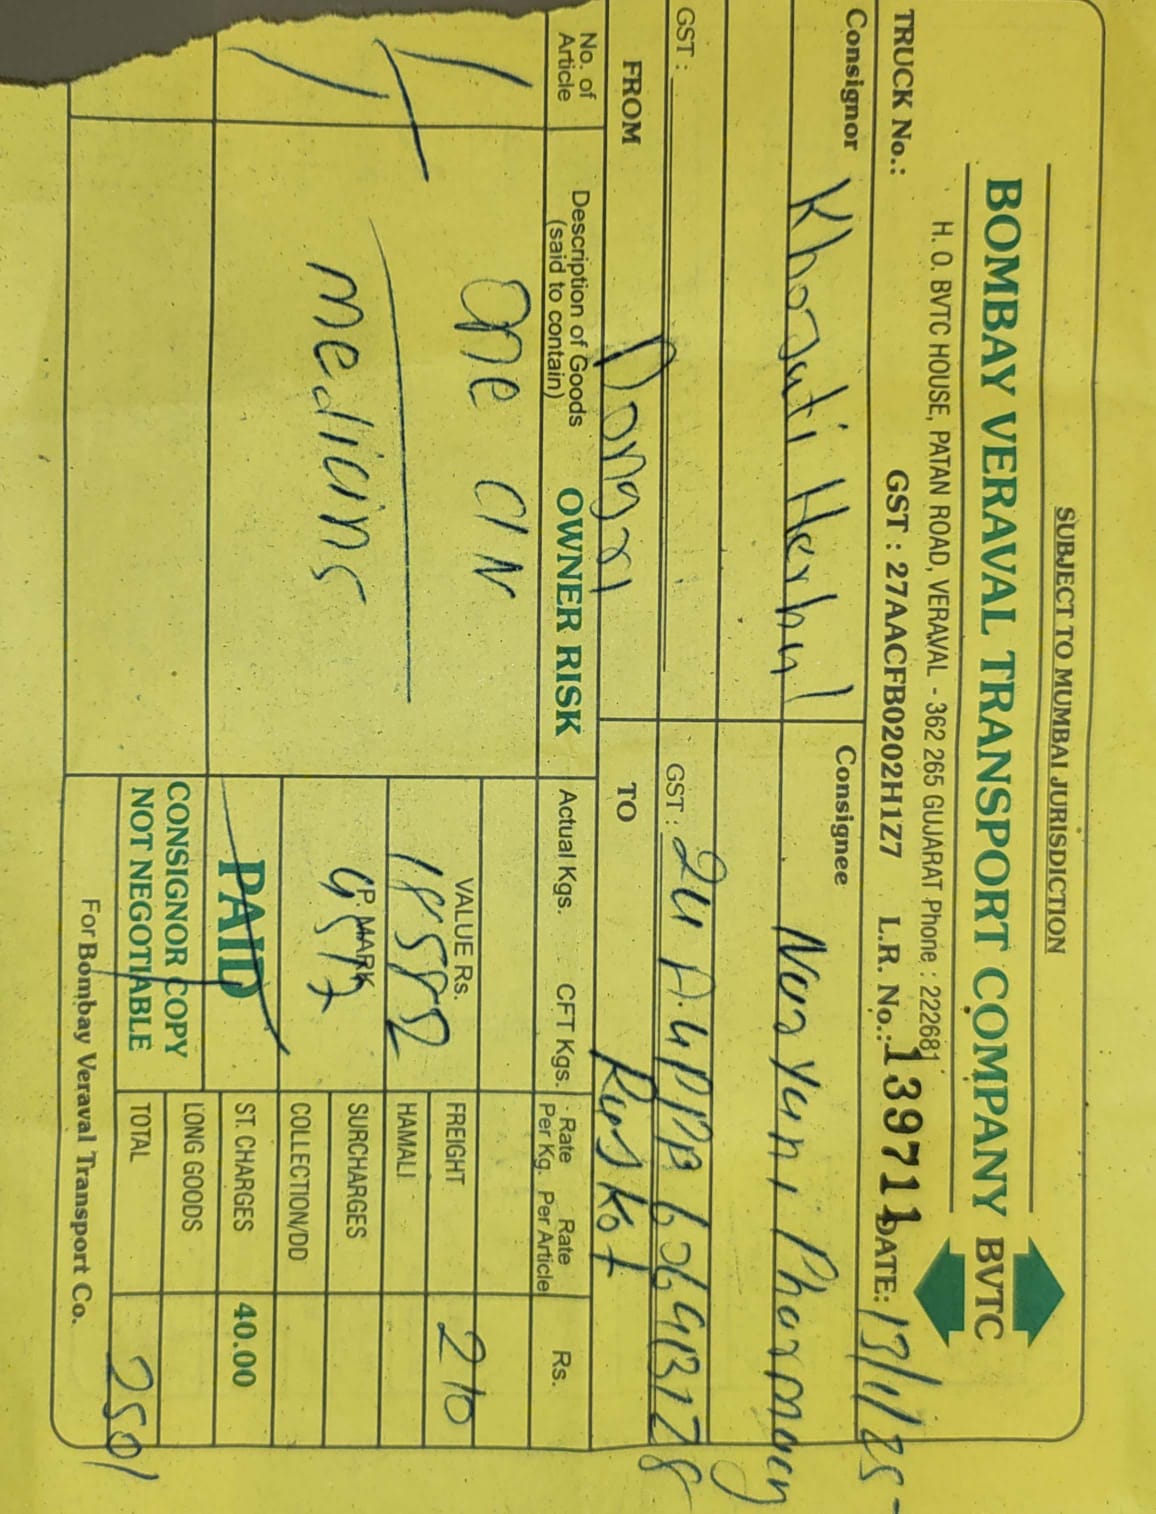 SUBJECT TO MUMBAI JURISDICTION
BOMBAY VERAVAL TRANSPORT COMPANY BVTC
H. O. BVTC HOUSE, PATAN ROAD, VERAVAL - 362 265 GUJARAT Phone : 222681
TRUCK No.: GST : 27AACFB0202H1Z7 L.R. No.: 139711 DATE: 13/1/25
Consignor Consignee
Pharmacy
GST : GST : 24
FROM Dongri TO Rajkot
No. of Article Description of Goods (said to contain) OWNER RISK Actual Kgs. CFT Kgs. Rate Per Kg. Rate Per Article Rs.
one CIN
medicins
VALUE Rs.
P. MARK
PAID
CONSIGNOR COPY
NOT NEGOTIABLE
FREIGHT 210
HAMALI
SURCHARGES
COLLECTION/DD
ST. CHARGES 40.00
LONG GOODS
TOTAL 250/
For Bombay Veraval Transport Co.